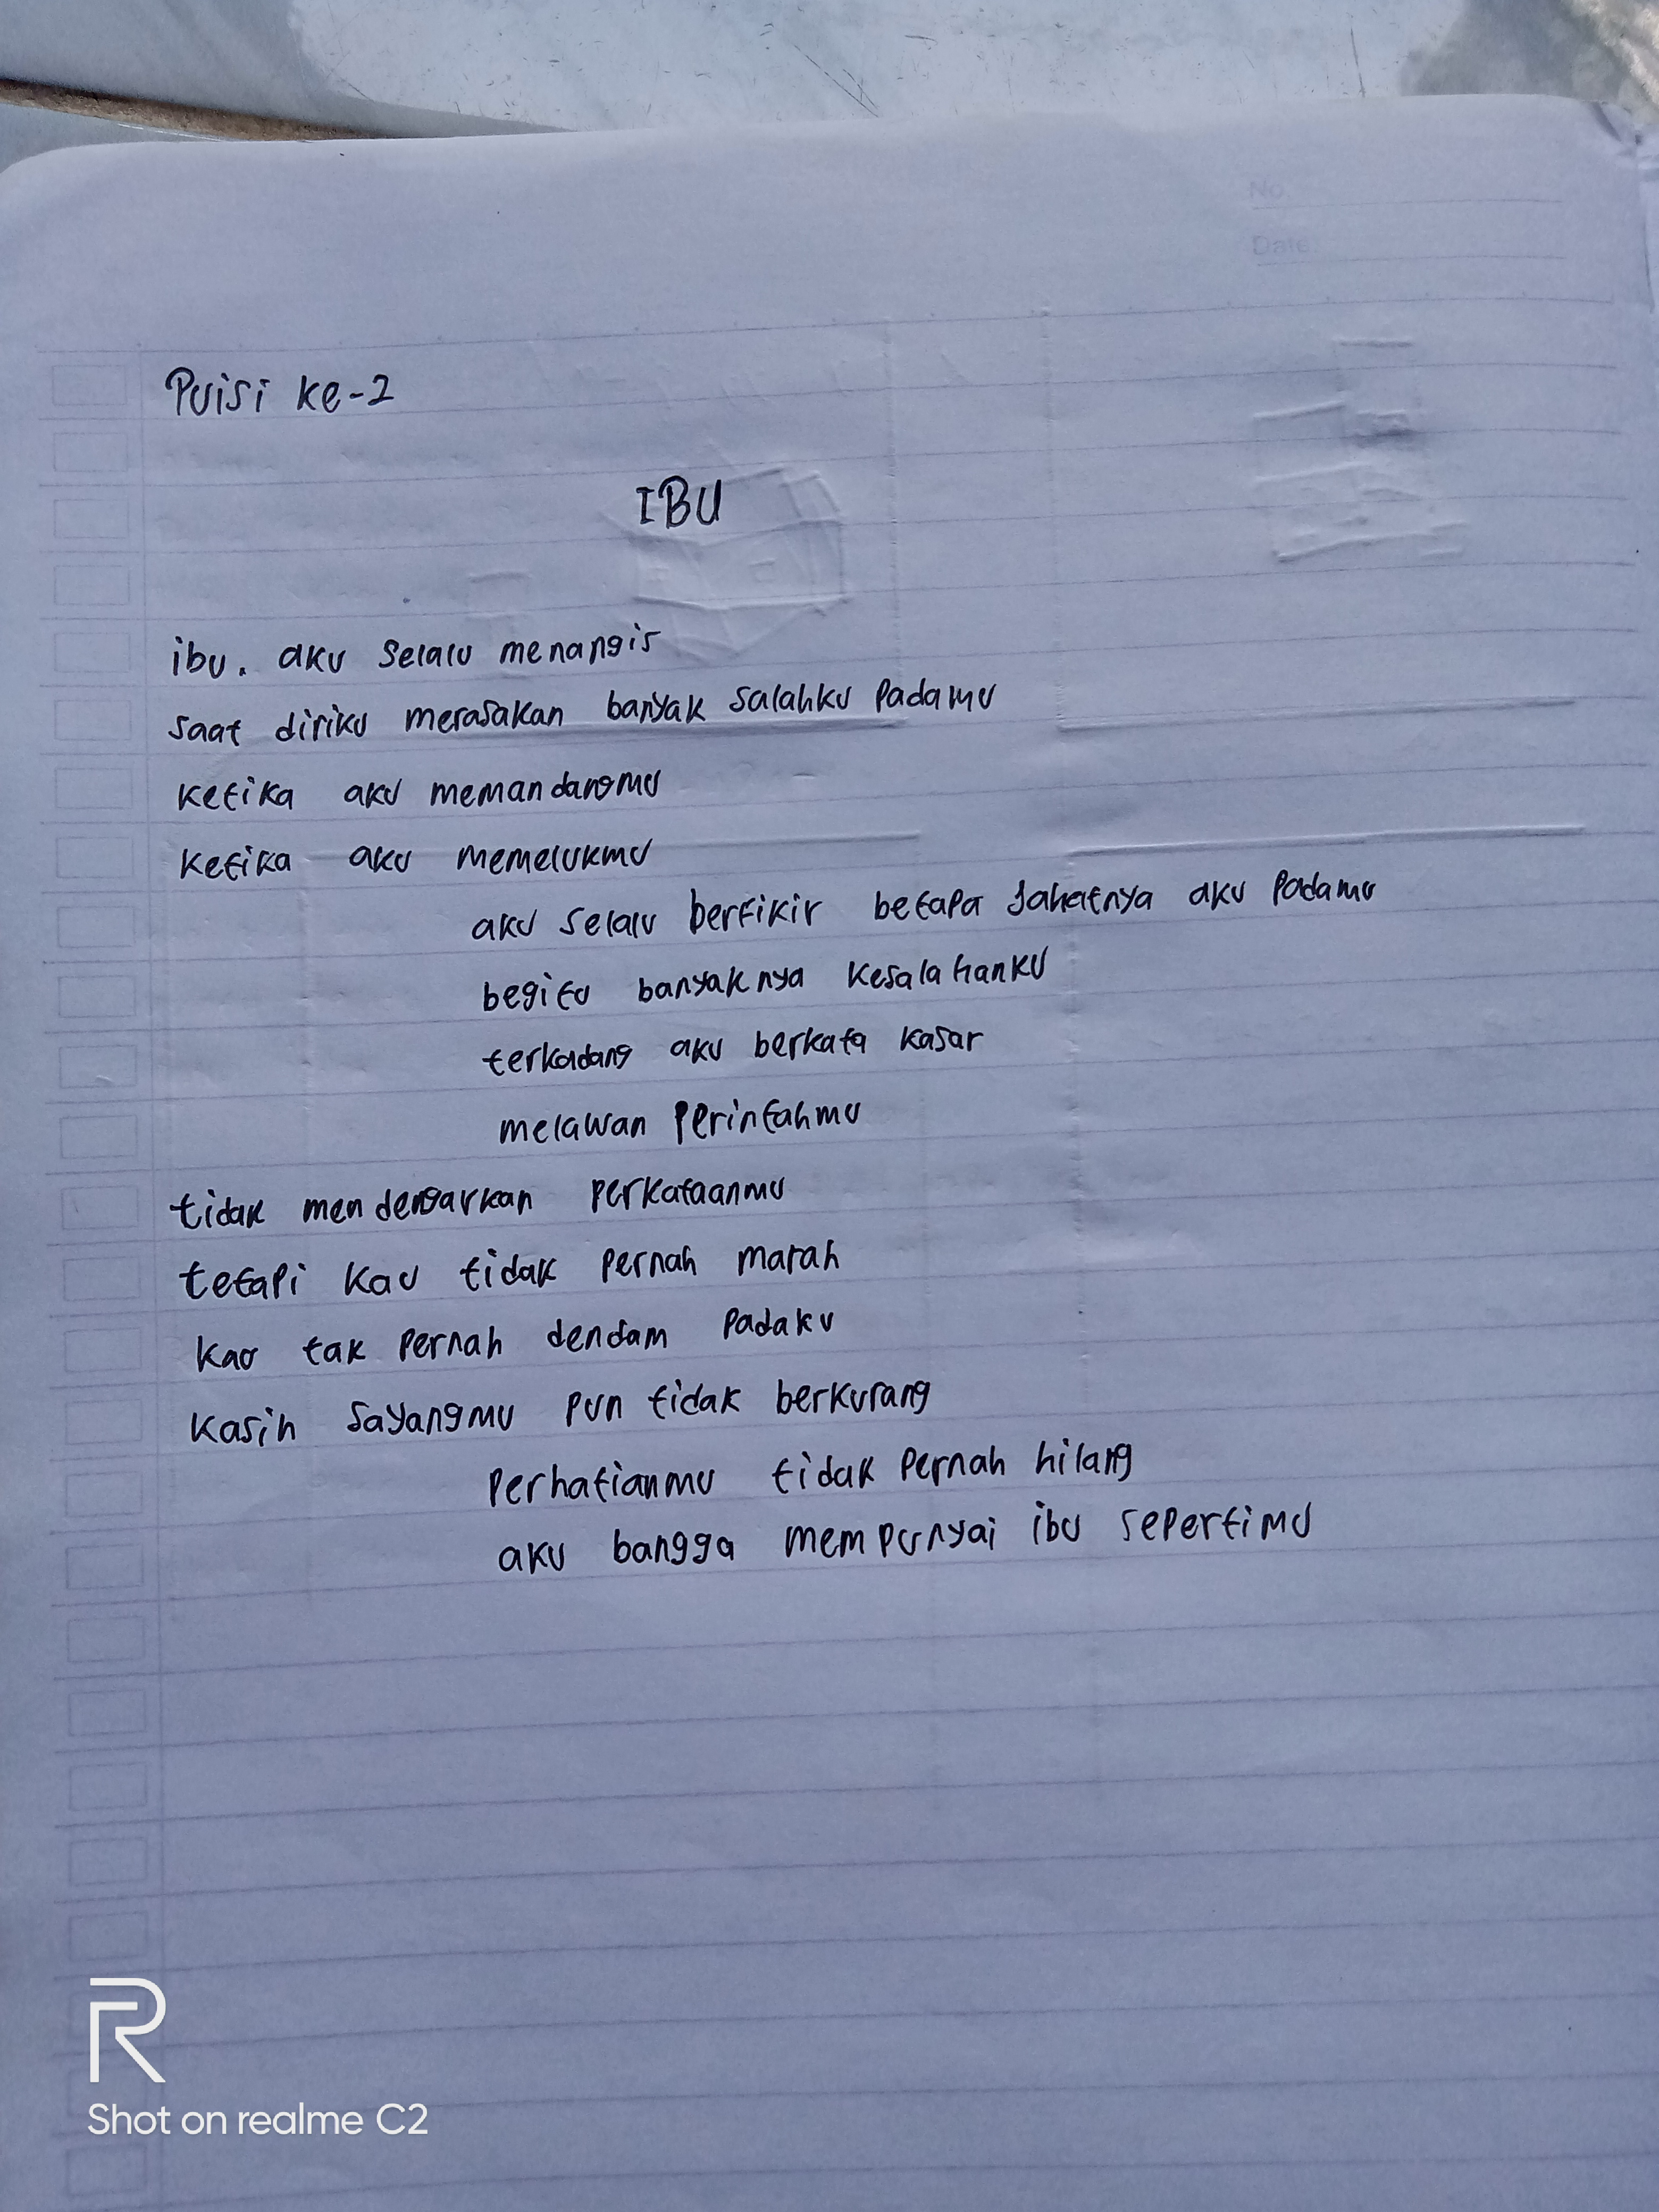 No.
Date:
Puisi ke-2
IBU
ibu. aku selalu menangis
saat diriku merasakan banyak salahku padamu
ketika aku memandangmu
ketika aku memelukmu
aku selalu berfikir betapa jahatnya aku padamu
begitu banyaknya kesalahanku
terkadang aku berkata kasar
melawan perintahmu
tidak mendengarkan perkataanmu
tetapi kau tidak pernah marah
kau tak pernah dendam padaku
kasih sayangmu pun tidak berkurang
perhatianmu tidak pernah hilang
aku bangga mempunyai ibu sepertimu
R
Shot on realme C2